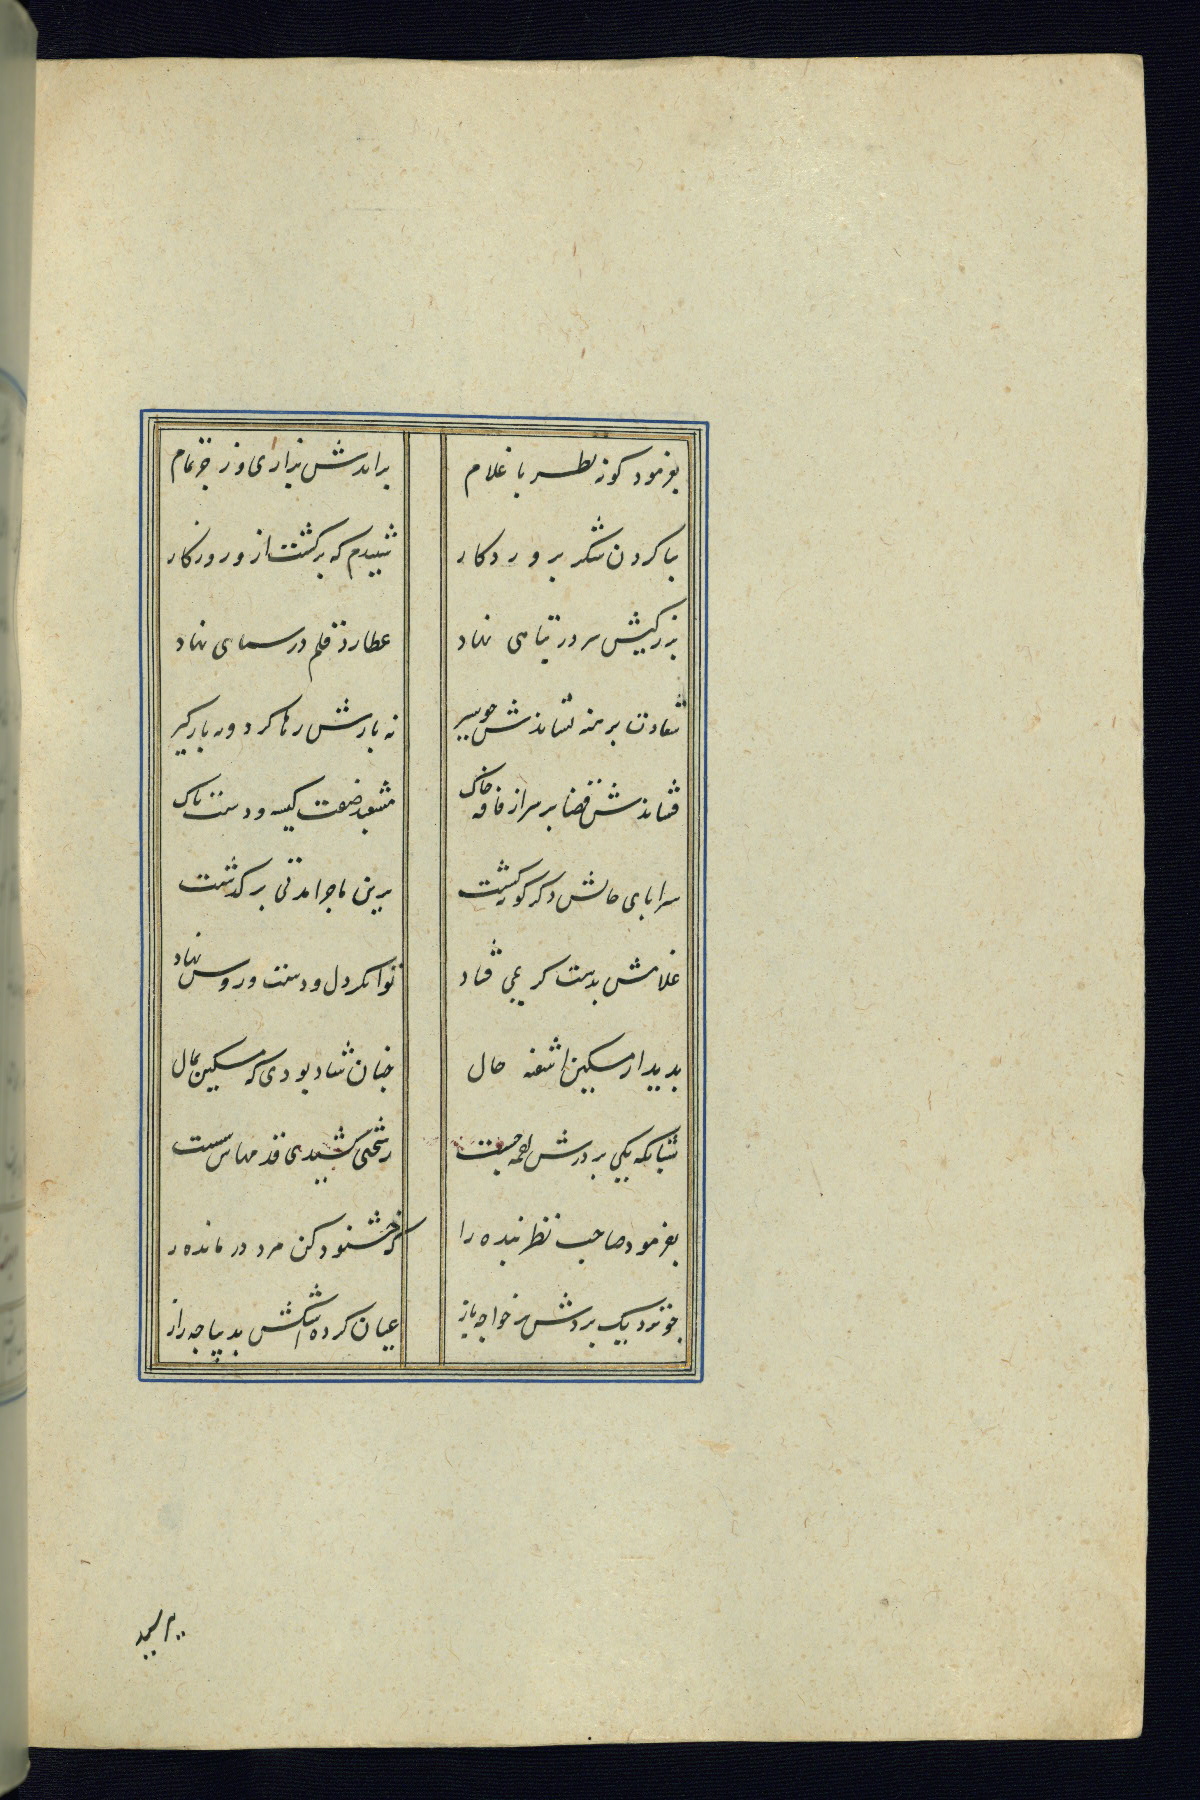 بفرمود کوته نظر با غلام
براندش بزاری و زجر تمام
بنا کردن شکر پروردکار
شنیدم که برکشت ازو روزکار
بزرکیش سر در تباهی نهاد
عطارد قلم در سیاهی نهاد
شقاوت برهنه نشاندش جو سیر
نه بارش رها کرد و نه بارکیر
فشاندش قضا بر سر از فاقه خاک
مشعبد صفت کیسه و دست پاک
سرابای حالش دکرکونه کشت
برین ماجرا مدتی برکذشت
غلامش بدست کریمی فتاد
توانکر دل و دست و روشن نهاد
بدیدار مسکین اشفته حال
جنان شاد بودی که مسکین بمال
شبانکه یکی بر درش لقمه جست
ز سختی کشیدن قدمهاش سست
بفرمود صاحب نظر بنده را
که خشنود کن مرد درمانده را
جو نزدیک بردش ز خوان بهره باز
عیان کرده اشکش بدیباجه راز